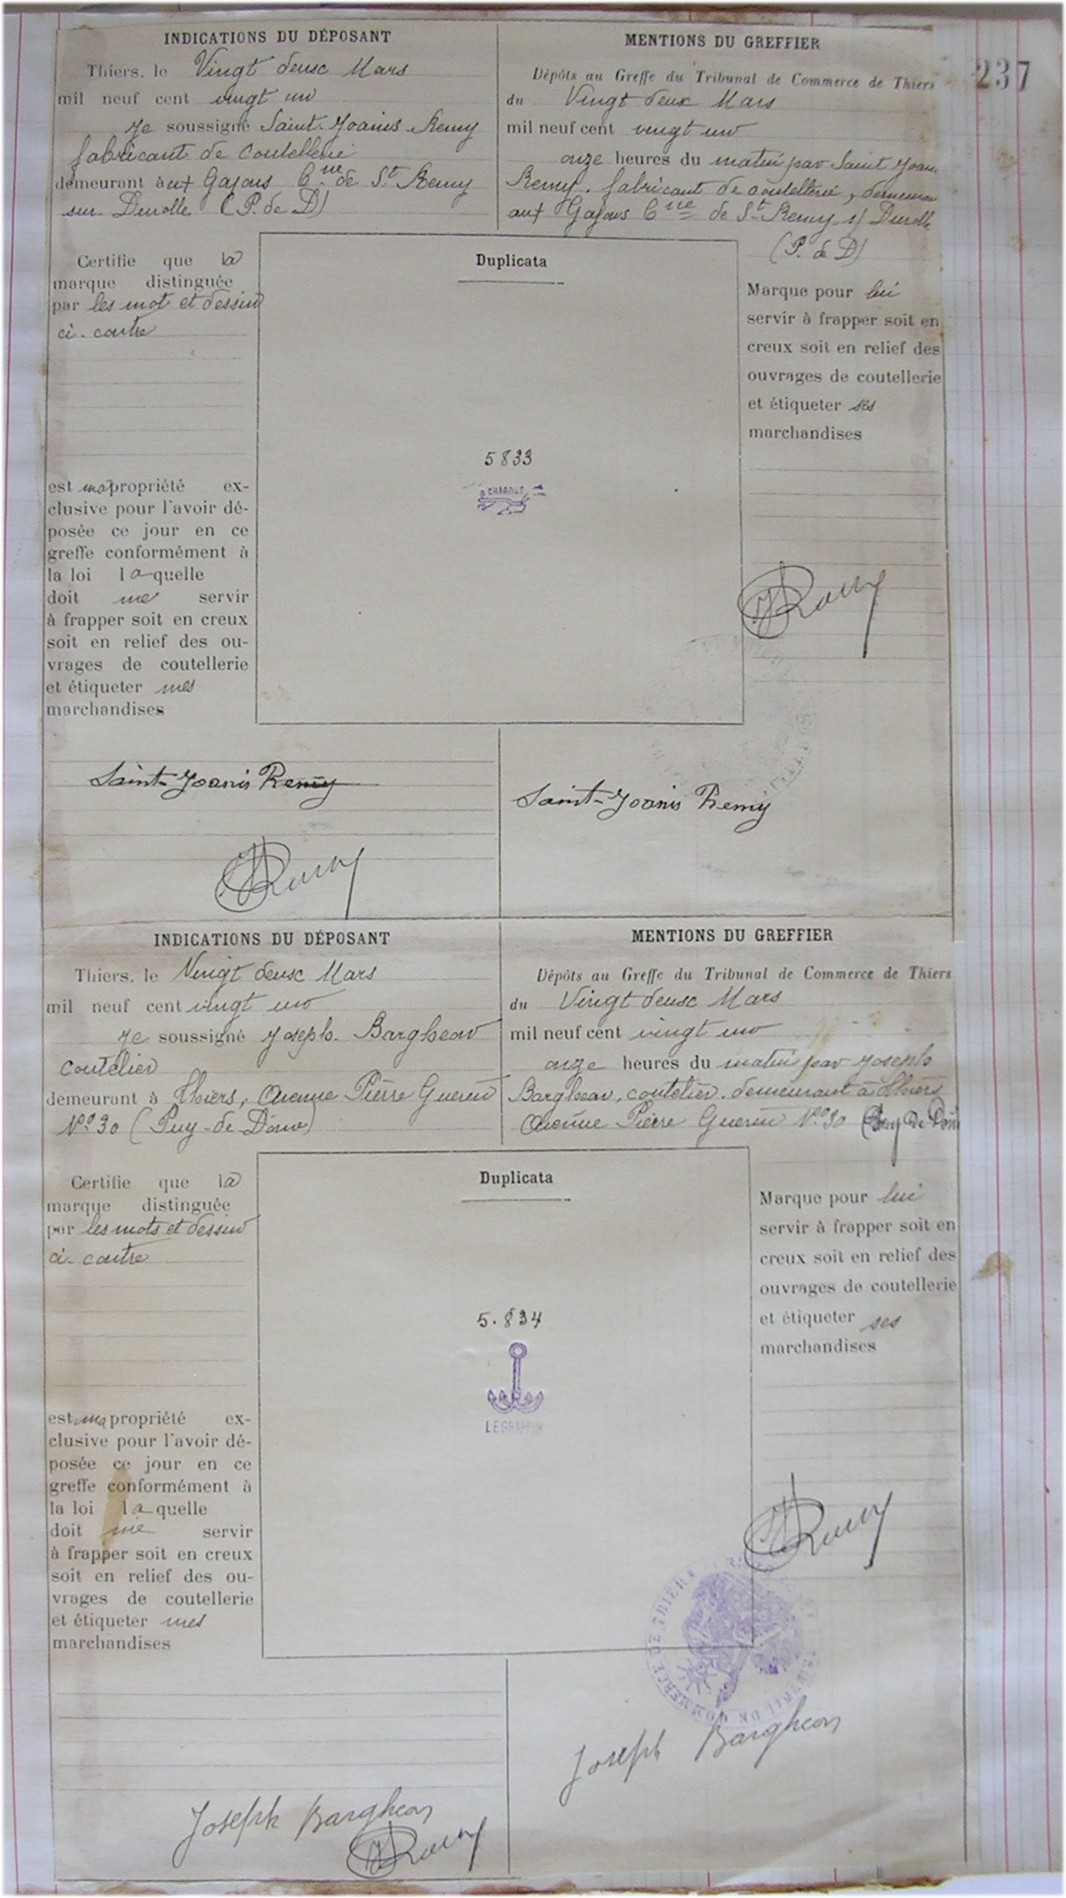 237
INDICATIONS DU DÉPOSANT
Thiers, le Vingt deux Mars
mil neuf cent vingt un
Je soussigné Saint-Joanis Remy
fabricant de coutellerie
demeurant aux Gajous Cne de St Remy
sur Durolle (P. de D)
Certifie que la
marque distinguée
par les mot et dessin
ci-contre
est ma propriété ex-
clusive pour l'avoir dé-
posée ce jour en ce
greffe conformément à
la loi laquelle
doit me servir
à frapper soit en creux
soit en relief des ou-
vrages de coutellerie
et étiqueter mes
marchandises
Saint-Joanis Remy
MENTIONS DU GREFFIER
Dépôts au Greffe du Tribunal de Commerce de Thiers
du Vingt deux Mars
mil neuf cent vingt un
onze heures du matin par Saint Joanis
Remy, fabricant de coutellerie, demeurant
aux Gajous Cne de St Remy s/ Durolle
(P. de D)
Duplicata
5833
Marque pour lui
servir à frapper soit en
creux soit en relief des
ouvrages de coutellerie
et étiqueter ses
marchandises
Saint-Joanis Remy
INDICATIONS DU DÉPOSANT
Thiers, le Vingt deux Mars
mil neuf cent vingt un
Je soussigné Joseph Bargheon
coutelier
demeurant à Thiers, Avenue Pierre Guerin
No 30 (Puy-de-Dôme)
Certifie que la
marque distinguée
par les mots et dessin
ci-contre
est ma propriété ex-
clusive pour l'avoir dé-
posée ce jour en ce
greffe conformément à
la loi laquelle
doit me servir
à frapper soit en creux
soit en relief des ou-
vrages de coutellerie
et étiqueter mes
marchandises
Joseph Bargheon
MENTIONS DU GREFFIER
Dépôts au Greffe du Tribunal de Commerce de Thiers
du Vingt deux Mars
mil neuf cent vingt un
onze heures du matin par Joseph
Bargheon, coutelier, demeurant à Thiers
Avenue Pierre Guerin No 30 (Puy de Dôm
Duplicata
5.834
LE GRAPPIN
Marque pour lui
servir à frapper soit en
creux soit en relief des
ouvrages de coutellerie
et étiqueter ses
marchandises
COMMERCE DE THIERS
Joseph Bargheon